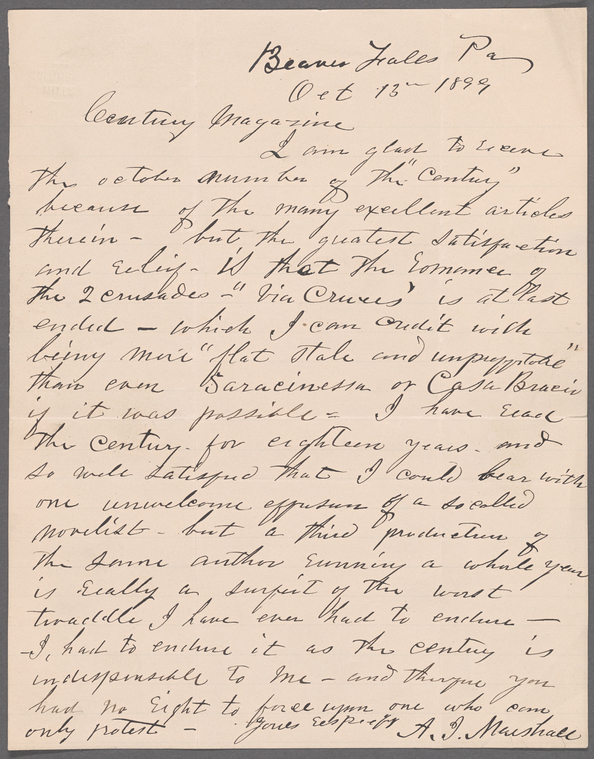 Beaver Falls Pa
Oct 13th 1899
Century Magazine
I am glad to receive
the october number of the "Century"
because of the many excellent articles
therein - but the greatest satisfaction
and relief - is that the romance of
the 2 crusades - "Via Crucis" is at last
ended - which I can credit with
being more "flat stale and unprofitable"
than even Saracinessa or Casa Braccio
if it was possible = I have read
the century - for eighteen years - and
so well satisfied that I could bear with
one unwelcome effusion of a so called
novelist - but a third production of
the same author running a whole year
is really a surfeit of the worst
twaddle I have ever had to endure -
- I, had to endure it as the century is
indispensable to me - and therefore you
had no right to force upon one who can
only protest - yours respectf A. J. Marshall